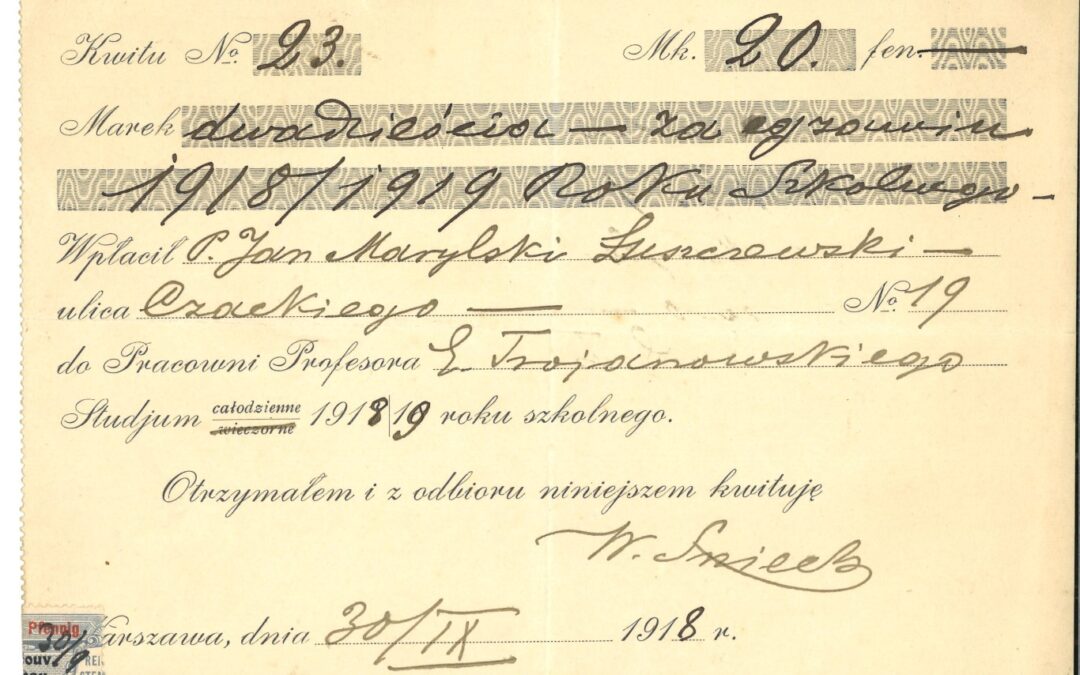 Kwitu No. 23. Mk. 20. fen.
Marek dwadzieścia — za egzamin
1918/1919 Roku Szkolnego —
Wpłacił P. Jan Marylski Łuszczewski —
ulica Czackiego — No. 19
do Pracowni Profesora E. Trojanowskiego
Studjum całodzienne wieczorne 1918/19 roku szkolnego.
Otrzymałem i z odbioru niniejszem kwituję
W.
Warszawa, dnia 30/IX 1918 r.
Pfennig
30/9
ouv.
REI